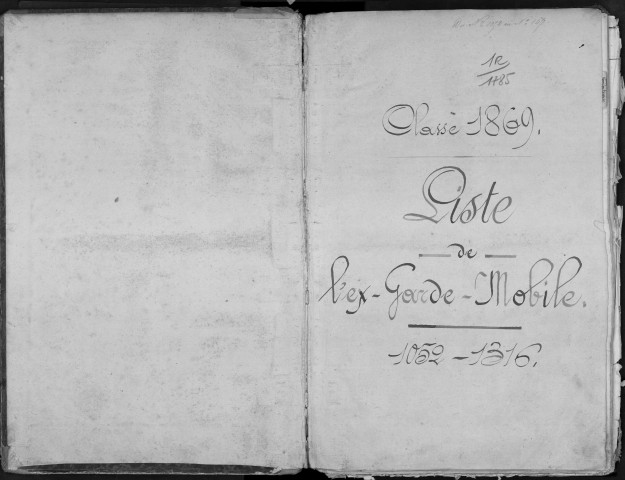 1R
1185
Classe 1869.
Liste
de
l'ex-Garde-Mobile.
1052-1316.